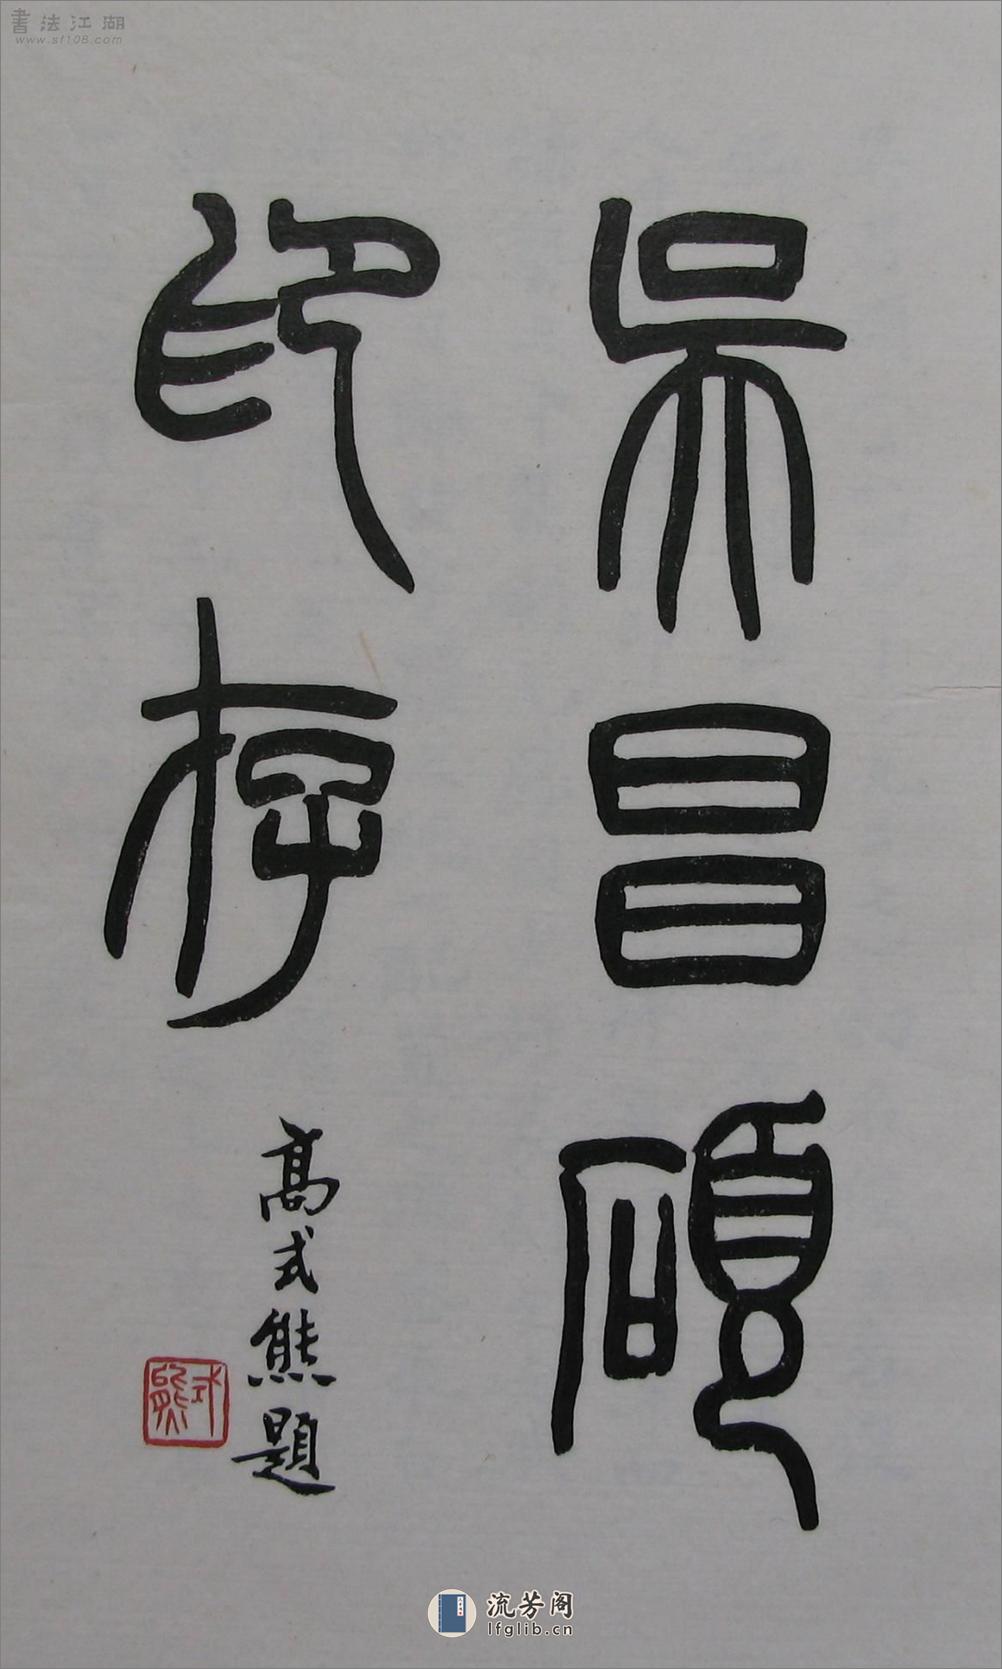 書法江湖
www.sf108.com
吴昌碩
印存
高式熊題
式熊
流芳阁
lfglib.cn